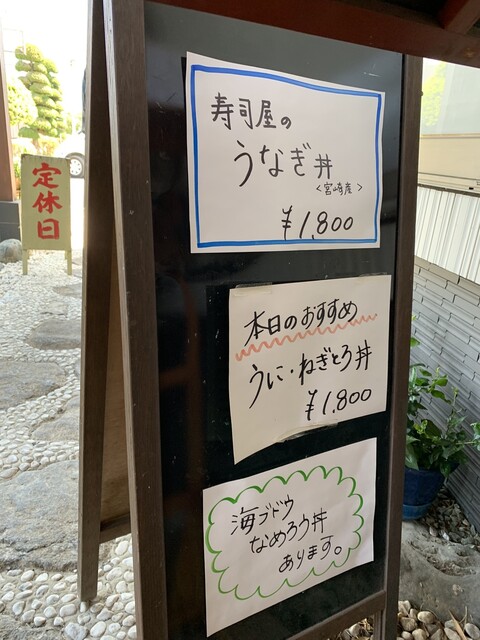 定休日
寿司屋の
うなぎ丼
<宮崎産>
¥1,800
本日のおすすめ
うに・ねぎとろ丼
¥1.800
海ブドウ
なめろう丼
あります。